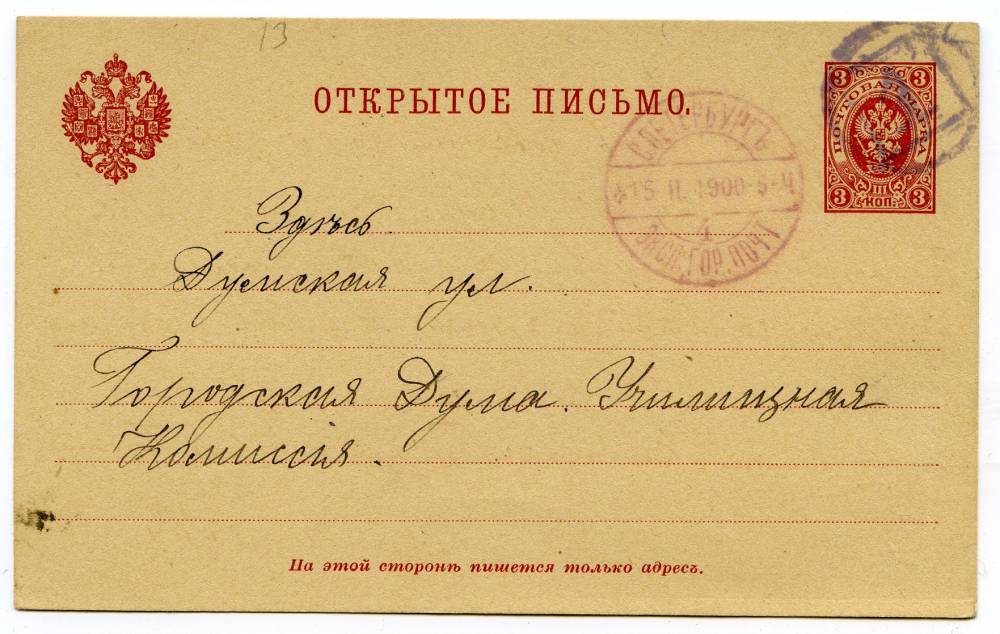 13
ОТКРЫТОЕ ПИСЬМО.
3 3
ПОЧТОВАЯ МАРКА
III
3 КОП. 3
С.ПЕТЕРБУРГЪ
15 II. 1900 5-Ч
1
ЭКСП. ГОР. ПОЧТ
Здѣсь.
Думская ул.
Городская Дума. Училищная
Комиссія.
На этой сторонѣ пишется только адресъ.